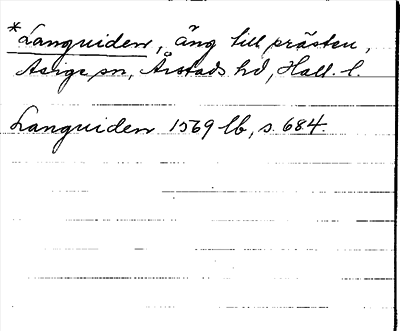 *Languiden, äng till prästen,
Asige sn, Årstads hd, Hall. l.
Languiden 1569 lb, s. 684.